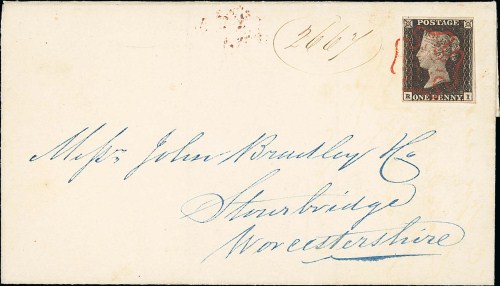 2667
POSTAGE
R I
ONE PENNY
Messrs John Bradley & Co
Stourbridge
Worcestershire